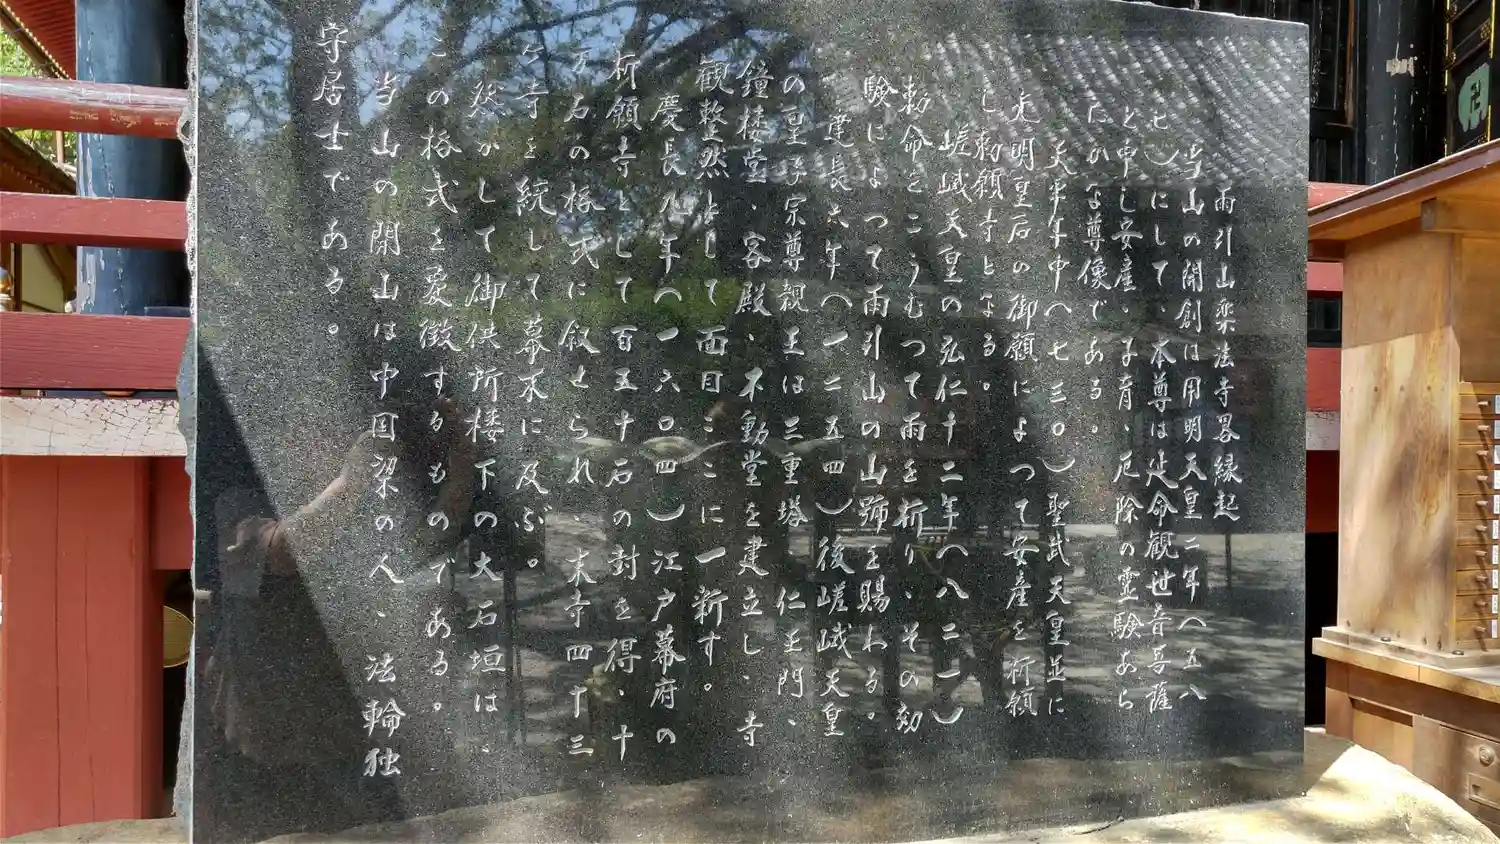 雨引山楽法寺畧縁起
当山の開創は用明天皇二年（五八
七）にして、本尊は延命観世音菩薩
と申し安産、子育、厄除の霊験あら
たかな尊像である。
天平年中（七三〇）聖武天皇並に
光明皇后の御願によつて安産を祈願
し勅願寺となる。
嵯峨天皇の弘仁十二年（八二一）
勅命をこうむつて雨を祈り、その効
験によつて雨引山の山号を賜わる。
建長六年（一二五四）後嵯峨天皇
の皇子宗尊親王は三重塔、仁王門、
鐘楼堂、客殿、不動堂を建立し、寺
観整然として面目ここに一新す。
慶長九年（一六〇四）江戸幕府の
祈願寺として百五十石の封を得、十
万石の格式に叙せられ、末寺四十三
ケ寺を統して幕末に及ぶ。
然かして御供所楼下の大石垣は、
この格式を表徴するものである。
当山の開山は中国梁の人、法輪独
守居士である。
卍